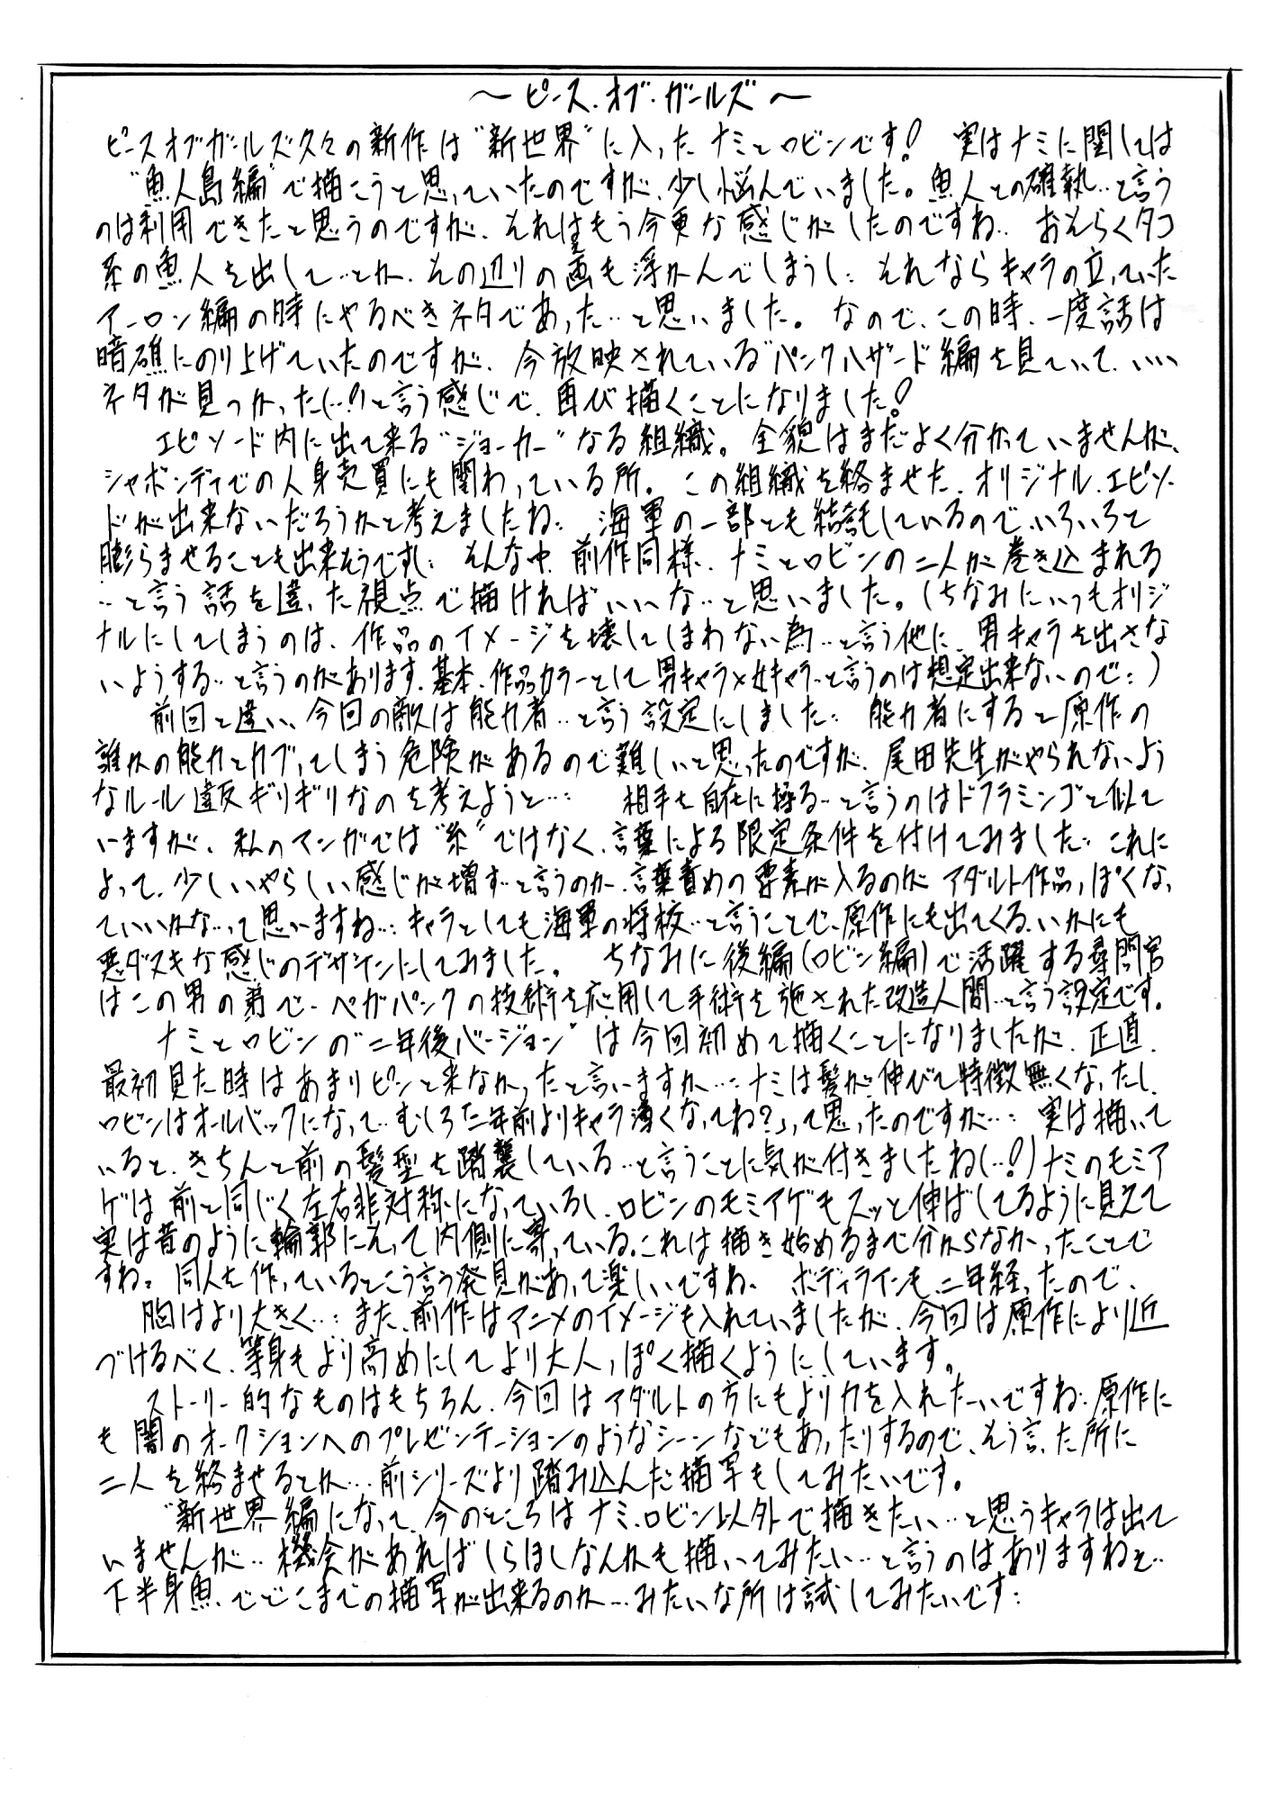 ～ピース・オブ・ガールズ～
ピースオブガールズ久々の新作は"新世界"に入ったナミとロビンです！ 実はナミに関しては
"魚人島編"で描こうと思っていたのですが、少し悩んでいました。魚人との確執…と言う
のは利用できたと思うのですが、それはもう今更な感じがしたのですね… おそらくタコ
系の魚人を出して…とか、その辺りの画も浮かんでしまうし… それならキャラの立っていた
アーロン編の時にやるべきネタであった…と思いました。 なので、この時、一度話は
暗礁にのり上げていたのですが、今放映されている"パンクハザード編を見ていて、いい
ネタが見つかった(…！)と言う感じで、再び描くことになりました！
エピソード内に出て来る"ジョーカー"なる組織。全貌はまだよく分かっていませんが、
シャボンディでの人身売買にも関わっている所。この組織を絡ませた、オリジナル、エピソー
ドが出来ないだろうかと考えましたね… 海軍の一部とも結託しているので、いろいろと
膨らませることも出来そうですし… そんな中、前作同様、ナミとロビンの二人が巻き込まれる
…と言う話を違った視点で描ければいいな…と思いました。(ちなみにいつもオリジ
ナルにしてしまうのは、作品のイメージを壊してしまわない為…と言う他に、男キャラを出さな
いようする…と言うのがあります、基本、作品カラーとして男キャラ×女キャラ…と言うのは想定出来ないので…)
前回と違い、今回の敵は能力者…と言う設定にしました… 能力者にすると原作の
誰かの能力とカブってしまう危険があるので難しいと思ったのですが、尾田先生がやられないよう
なルール違反ギリギリなのを考えようと… 相手を自在に操る…と言うのはドフラミンゴと似て
いますが、私のマンガでは"糸"ではなく、言葉による限定条件を付けてみました… これに
よって、少しいやらしい感じが増す…と言うのか、言葉責めの要素が入るのが アダルト作品っぽくなっ
ていいかな…って思いますね… キャラとしても海軍の将校…と言うことで、原作にも出てくる、いかにも
悪ダスキな感じのデザインにしてみました。 ちなみに後編(ロビン編)で活躍する尋問官
はこの男の弟で、ベガパンクの技術を応用して手術を施された改造人間…と言う設定です。
ナミとロビンの"二年後バージョン"は今回初めて描くことになりましたが、正直、
最初見た時はあまりピンと来なかったと言いますか… ナミは髪が伸びて特徴無くなったし、
ロビンはオールバックになって、むしろ「二年前よりキャラ薄くなってね？」って思ったのですが… 実は描いて
いると、きちんと前の髪型を踏襲している…と言うことに気が付きましたね(…！)ナミのモミア
ゲは前と同じく左右非対称になっているし、ロビンのモミアゲもスッと伸ばしてるように見えて
実は昔のように輪郭にそって内側に寄っている。これは描き始めるまで分からなかったことで
すね。同人を作っているとこう言う発見があって楽しいですね、 ボディラインも、二年経ったので、
胸はより大きく… また、前作はアニメのイメージも入れていましたが、今回は原作により近
づけるべく、等身もより高めにしてより大人っぽく描くようにしています。
ストーリー的なものはもちろん、今回はアダルトの方にもより力を入れたーいですね、原作に
も闇のオークションへのプレゼンテーションのようなシーンなどもあったりするので、そう言った所に
二人を絡ませるとか… 前シリーズより踏み込んだ描写もしてみたいです。
"新世界編になって、今のところはナミ、ロビン以外で描きたい…と思うキャラは出て
いませんが… 機会があればしらほしなんかも描いてみたい…と言うのはありますねぇ…
下半身魚、でどこまでの描写が出来るのか…みたいな所は試してみたいです…